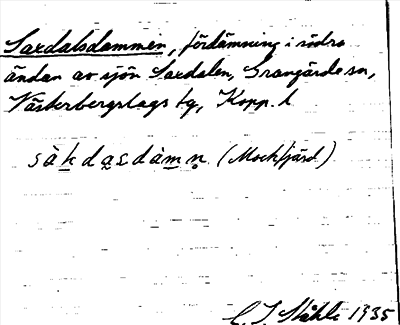 Saxdalsdammen, fördämning i södra
ändan av sjön Saxdalen, Grangärde sn,
Västerbergslags tg, Kopp. l.
såkdasdàmn (Mockfjärd)
C. I. Ståhle 1935